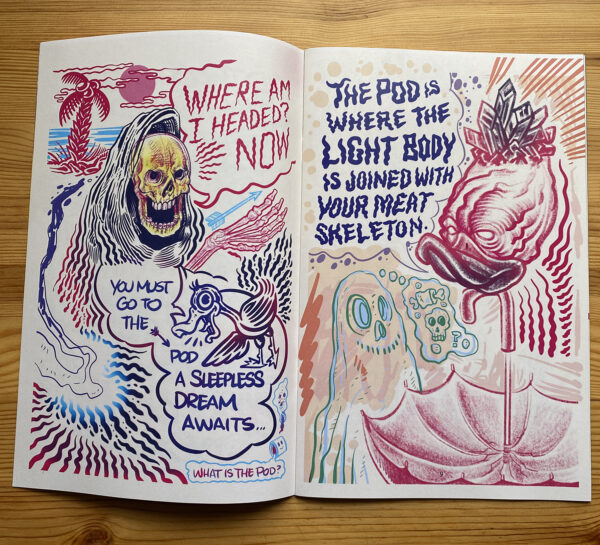 WHERE AM
I HEADED?
NOW
YOU MUST
GO TO
THE
POD
A SLEEPLESS
DREAM
AWAITS...
WHAT IS THE POD?
THE POD IS
WHERE THE
LIGHT BODY
IS JOINED WITH
YOUR MEAT
SKELETON.